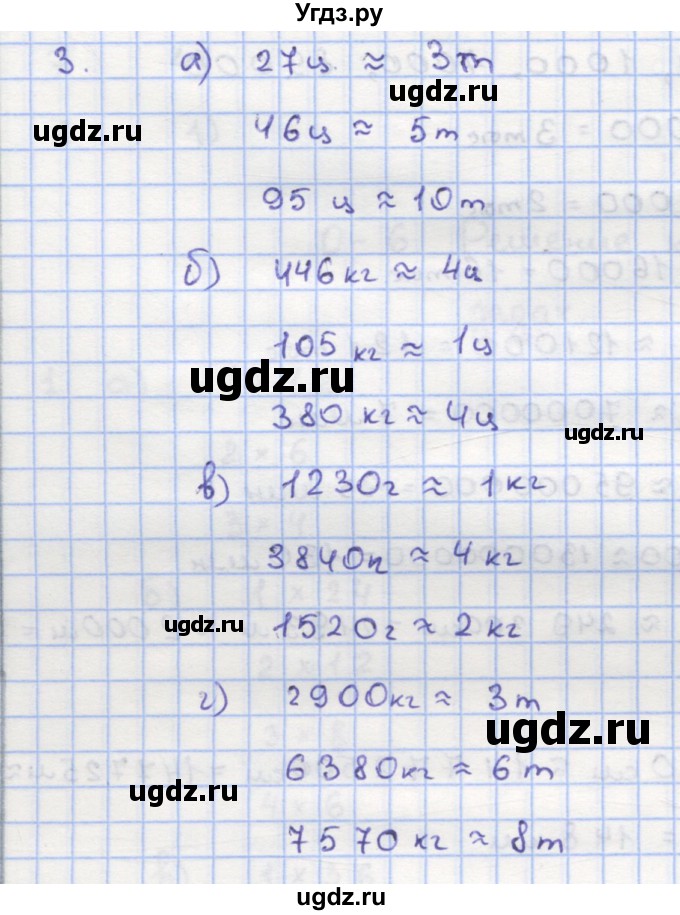 Угдз.ру
3. а) 27ц ≈ 3т
ugdz.ru
ugdz.ru
46ц ≈ 5т
95 ц ≈ 10т
б) 446кг ≈ 4ц
105 кг ≈ 1ц
ugdz.ru
380 кг ≈ 4ц
ugdz.ru
в) 1230г ≈ 1кг
3840г ≈ 4кг
ugdz.ru
1520г ≈ 2кг
г) 2900кг ≈ 3т
ugdz.ru
6380кг ≈ 6т
ugdz.ru
7570кг ≈ 8т
ugdz.ru